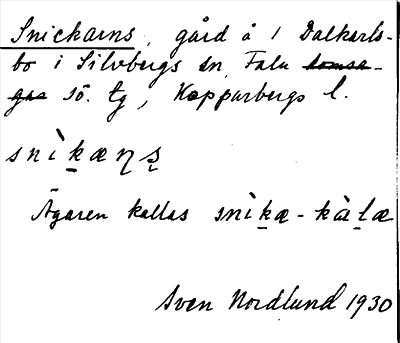 Snickarns, gård å 1 Dalkarls-
bo i Silvbergs sn, Falu domsa-
gas sö. tg, Kopparbergs l.
snìk̠æŋ ʂ
Ägaren kallas snìk̠æ - kàl̠æ
Sven Nordlund 1930